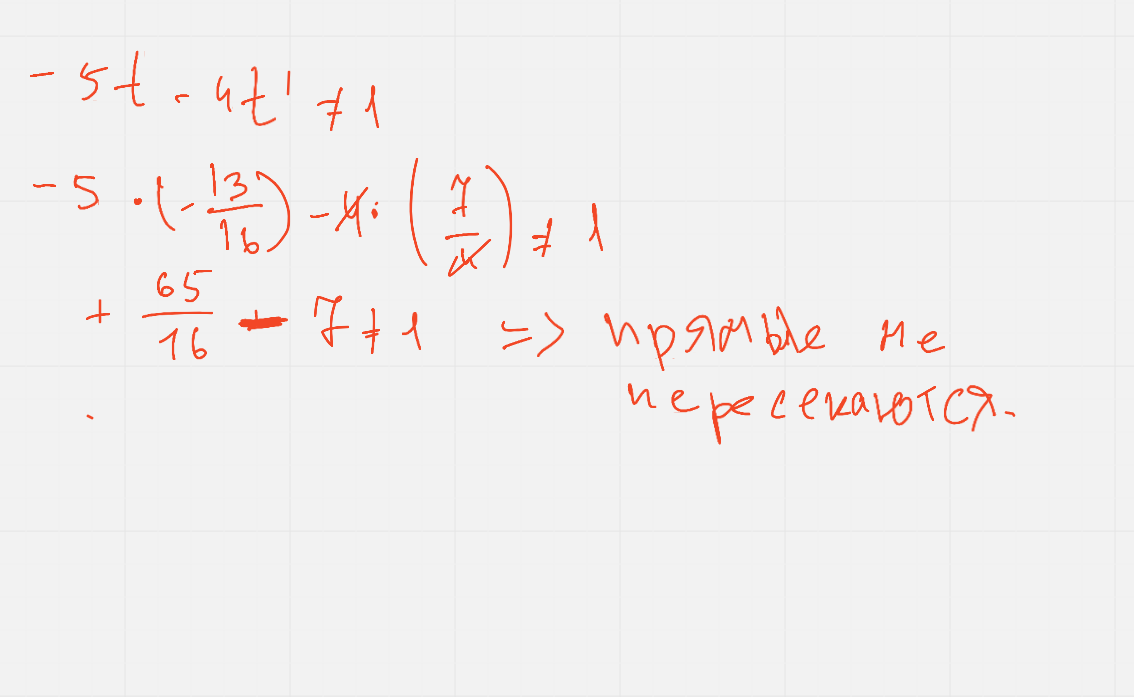 -5t - 4t' ≠ 1
-5 · (-13/16) - 4 · (7/4) ≠ 1
+ 65/16 - 7 ≠ 1 => прямые не
пересекаются.